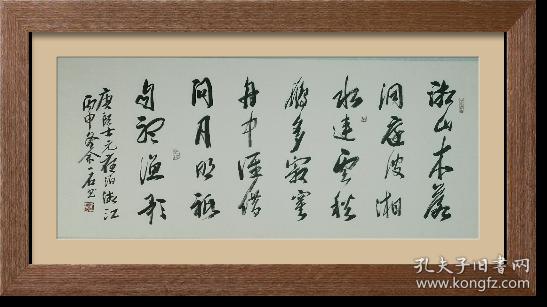 湘山木落
洞庭波湘
水連雲秋
雁多寂寞
舟中誰借
問月明祗
自聽漁歌
唐郎士元夜泊湘江
丙申
孔夫子旧书网
www.kongfz.com